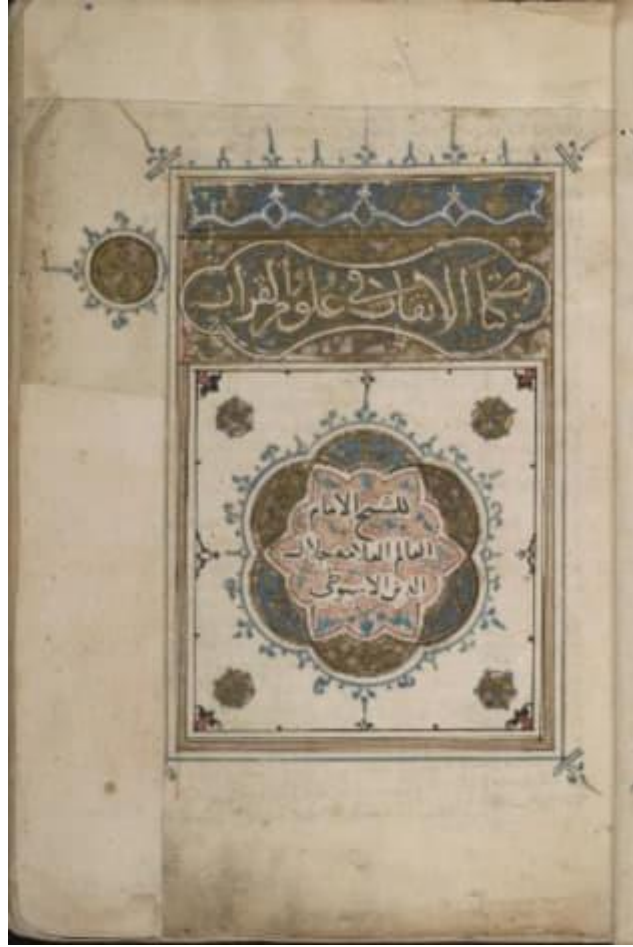 كتاب الاتقان في علوم القران
للشيخ الامام
العالم العلامة جلال
الدين الاسيوطي